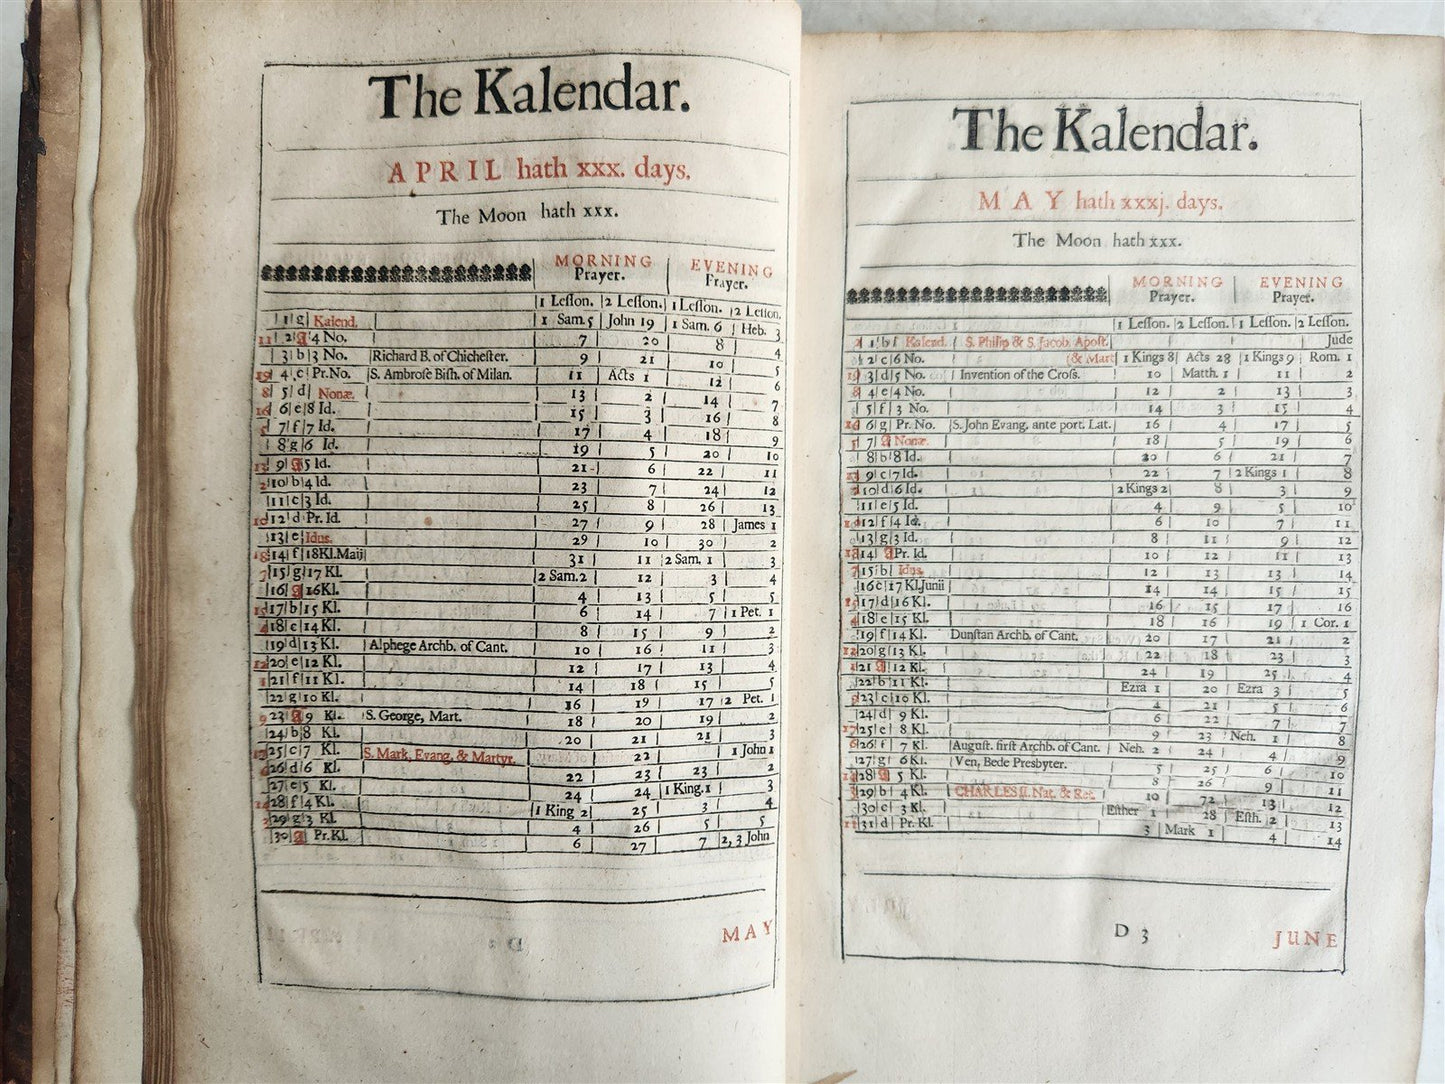 The Kalendar.
APRIL hath xxx. days.
The Moon hath xxx.
MORNING Prayer. | EVENING Prayer.
1 Leſſon. | 2 Leſſon. | 1 Leſſon. | 2 Leſſon.
1 g Kalend. 1 Sam. 5 John 19 1 Sam. 6 Heb. 3
11 2 A 4 No. 7 20 8 4
3 b 3 No. Richard B. of Chicheſter. 9 21 10 5
19 4 c Pr. No. S. Ambroſe Biſh. of Milan. 11 Acts 1 12 6
8 5 d Nonæ. 13 2 14 7
16 6 e 8 Id. 15 3 16 8
5 7 f 7 Id. 17 4 18 9
8 g 6 Id. 19 5 20 10
13 9 A 5 Id. 21 6 22 11
2 10 b 4 Id. 23 7 24 12
11 c 3 Id. 25 8 26 13
10 12 d Pr. Id. 27 9 28 James 1
13 e Idus. 29 10 30 2
18 14 f 18 Kl. Maij 31 11 2 Sam. 1 3
7 15 g 17 Kl. 2 Sam. 2 12 3 4
16 A 16 Kl. 4 13 5 5
15 17 b 15 Kl. 6 14 7 1 Pet. 1
4 18 c 14 Kl. 8 15 9 2
19 d 13 Kl. Alphege Archb. of Cant. 10 16 11 3
12 20 e 12 Kl. 12 17 13 4
1 21 f 11 Kl. 14 18 15 5
22 g 10 Kl. 16 19 17 2 Pet. 1
9 23 A 9 Kl. S. George, Mart. 18 20 19 2
24 b 8 Kl. 20 21 21 3
17 25 c 7 Kl. S. Mark, Evang. & Martyr. 22 1 John 1
6 26 d 6 Kl. 22 23 23 2
27 e 5 Kl. 24 24 1 King. 1 3
14 28 f 4 Kl. 1 King 2 25 3 4
3 29 g 3 Kl. 4 26 5 5
30 A Pr. Kl. 6 27 7 2, 3 John
MAY
The Kalendar.
MAY hath xxxj. days.
The Moon hath xxx.
MORNING Prayer. | EVENING Prayer.
1 Leſſon. | 2 Leſſon. | 1 Leſſon. | 2 Leſſon.
1 b Kalend. S. Philip & S. Jacob, Apoſt. Jude
2 c 6 No. (& Mart 1 Kings 8 Acts 28 1 Kings 9 Rom. 1
19 3 d 5 No. Invention of the Croſs. 10 Matth. 1 11 2
8 4 e 4 No. 12 2 13 3
5 f 3 No. 14 3 15 4
16 6 g Pr. No. S. John Evang. ante port. Lat. 16 4 17 5
5 7 A Nonæ. 18 5 19 6
8 b 8 Id. 20 6 21 7
13 9 c 7 Id. 22 7 2 Kings 1 8
2 10 d 6 Id. 2 Kings 2 8 3 9
11 e 5 Id. 4 9 5 10
10 12 f 4 Id. 6 10 7 11
13 g 3 Id. 8 11 9 12
18 14 A Pr. Id. 10 12 11 13
7 15 b Idus. 12 13 13 14
16 c 17 Kl. Junii 14 14 15 15
15 17 d 16 Kl. 16 15 17 16
4 18 e 15 Kl. 18 16 19 1 Cor. 1
19 f 14 Kl. Dunſtan Archb. of Cant. 20 17 21 2
12 20 g 13 Kl. 22 18 23 3
1 21 A 12 Kl. 24 19 25 4
22 b 11 Kl. Ezra 1 20 Ezra 3 5
9 23 c 10 Kl. 4 21 5 6
24 d 9 Kl. 6 22 7 7
17 25 e 8 Kl. 9 23 Neh. 1 8
6 26 f 7 Kl. Auguſt. firſt Archb. of Cant. Neh. 2 24 4 9
27 g 6 Kl. Ven, Bede Presbyter. 5 25 6 10
14 28 A 5 Kl. 8 26 9 11
3 29 b 4 Kl. CHARLES II. Nat. & Ret. 10 72 13 12
30 c 3 Kl. Eſther 1 28 Eſth. 2 13
11 31 d Pr. Kl. 3 Mark 1 4 14
D 3
JUNE